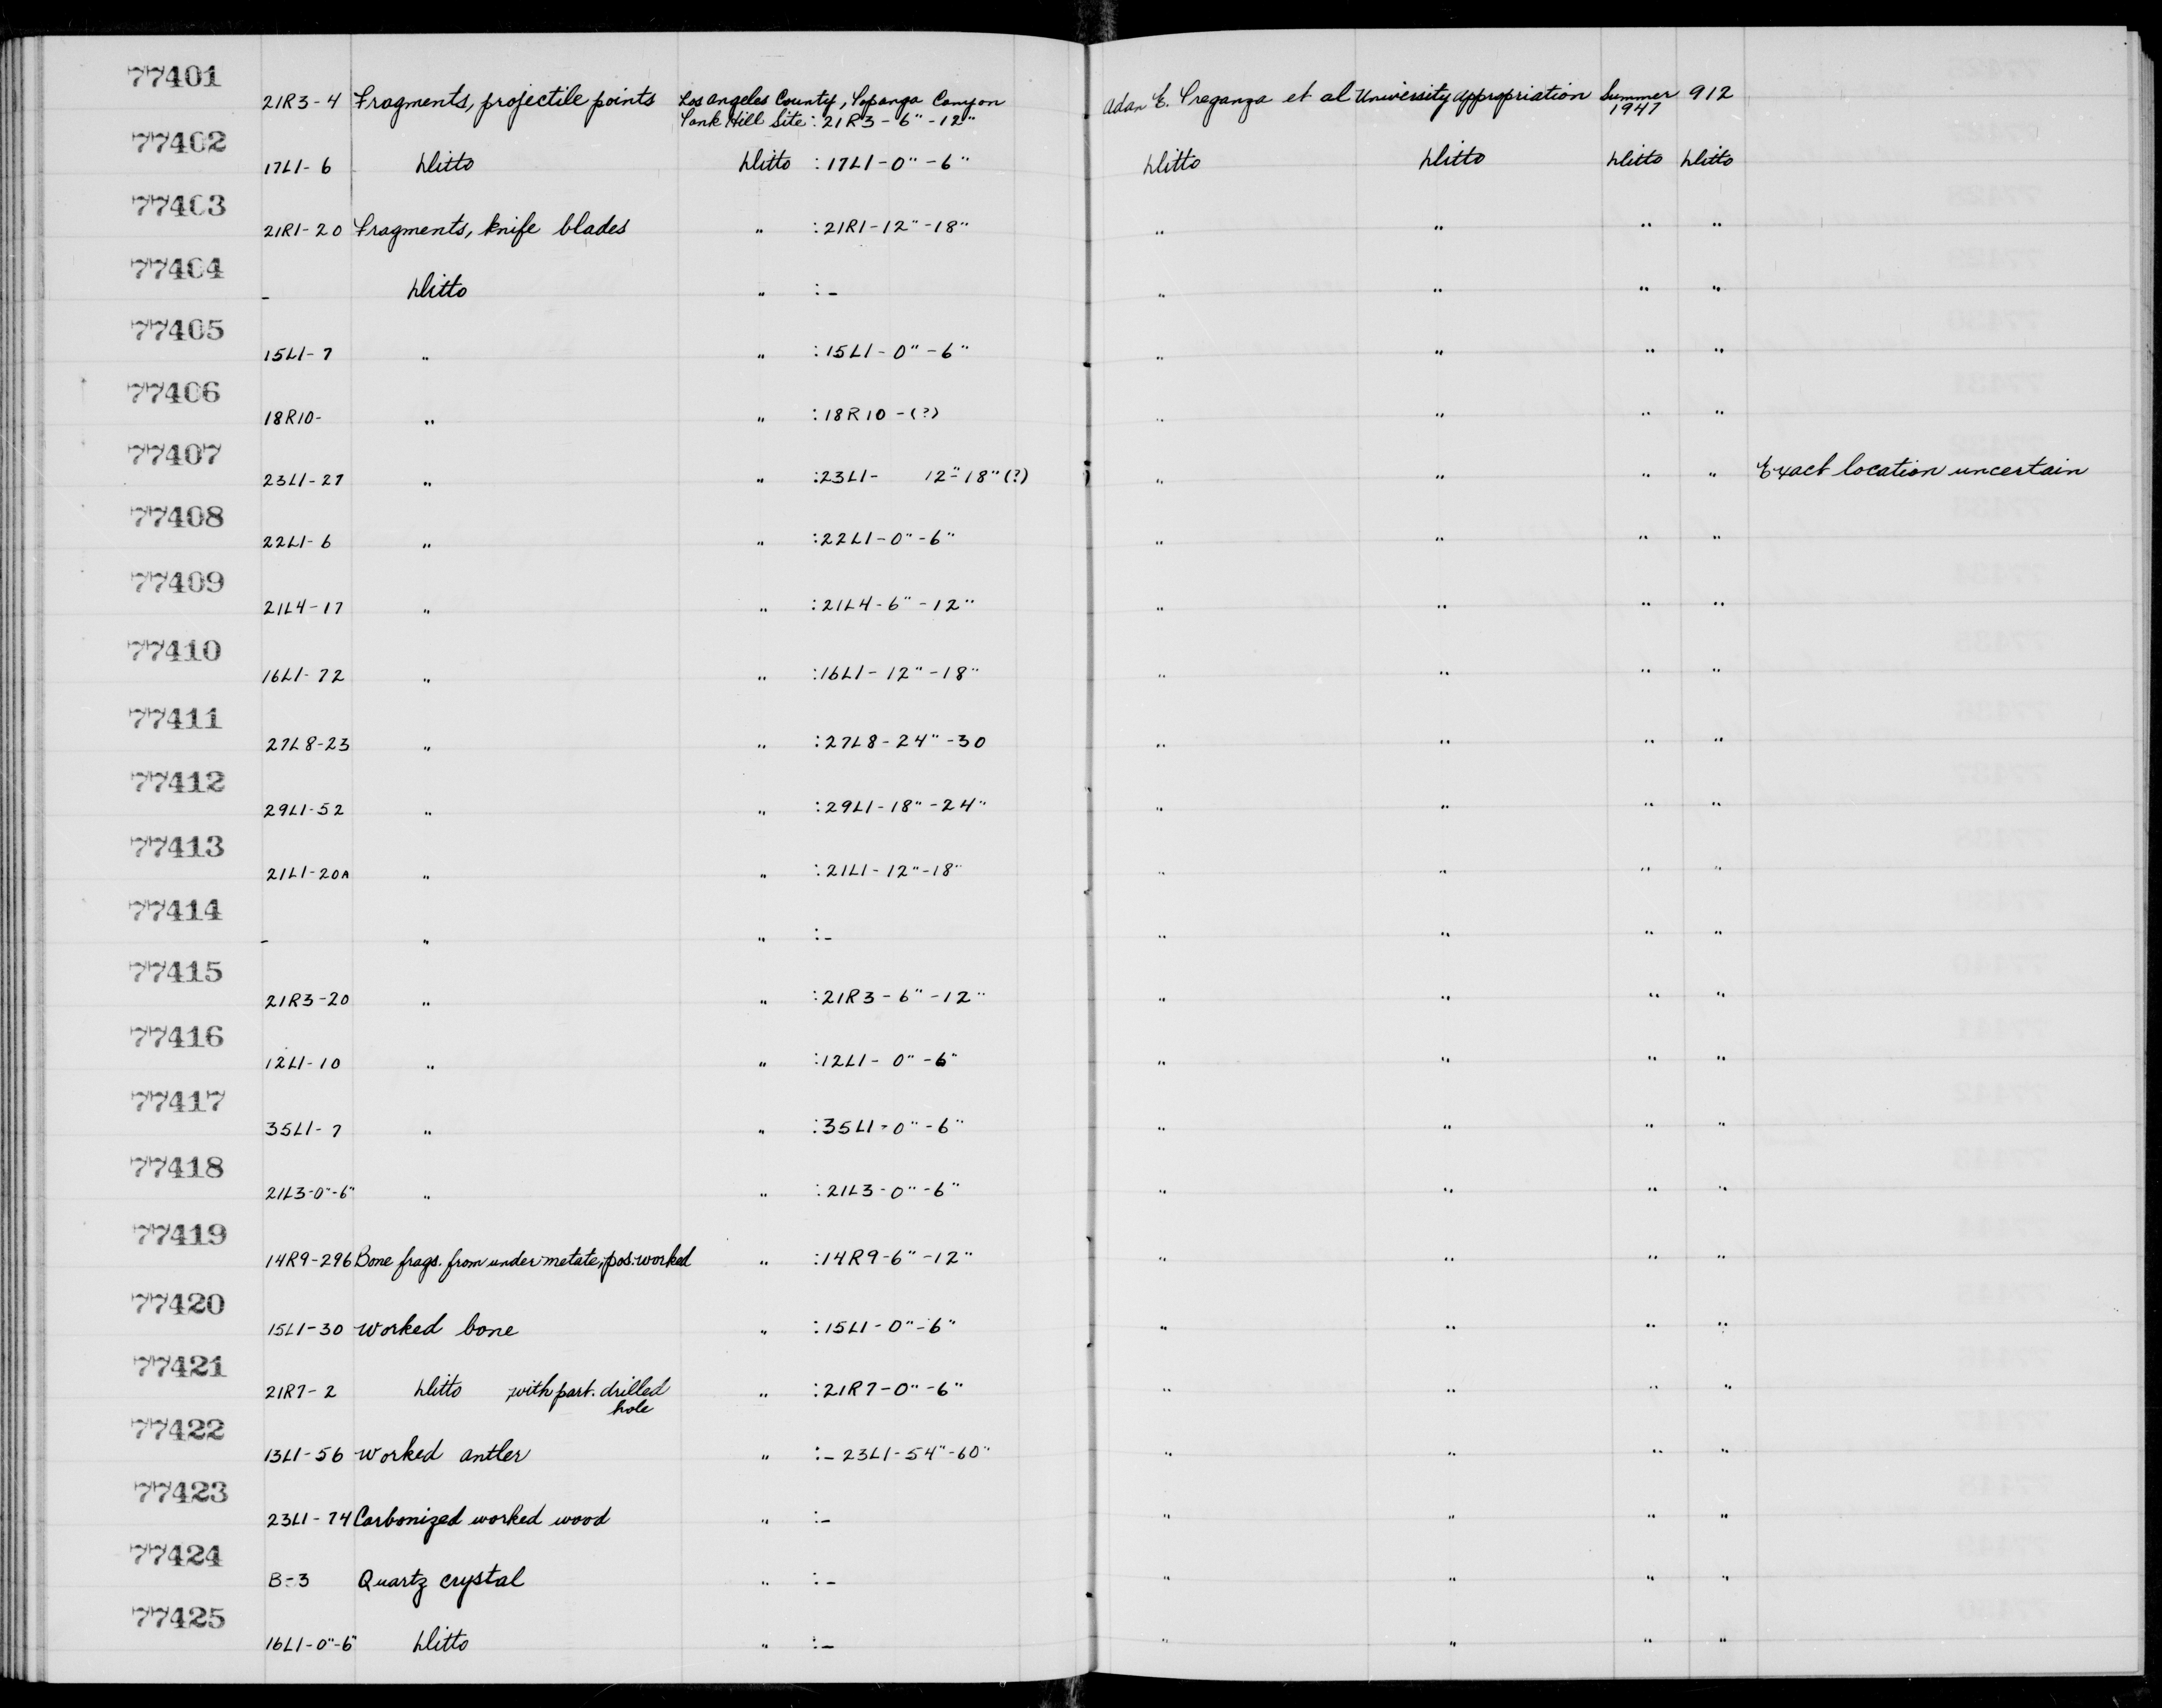 77401
21R3-4 Fragments, projectile points Los Angeles County, Topanga Canyon Adan E. Treganza et al University Appropriation Summer 912
Tank Hill Site: 21R3-6"-12" 1947
77402
17L1-6 Ditto Ditto :17L1-0"-6" Ditto Ditto Ditto Ditto
77403
21R1-20 Fragments, knife blades " :21R1-12"-18" " " " "
77404
- Ditto " :- " " " "
77405
15L1-7 " " :15L1-0"-6" " " " "
77406
18R10- " " :18R10-(?) " " " "
77407
23L1-27 " " :23L1- 12"-18"(?) " " " " Exact location uncertain
77408
22L1-6 " " :22L1-0"-6" " " " "
77409
21L4-17 " " :21L4-6"-12" " " " "
77410
16L1-72 " " :16L1-12"-18" " " " "
77411
27L8-23 " " :27L8-24"-30 " " " "
77412
29L1-52 " " :29L1-18"-24" " " " "
77413
21L1-20A " " :21L1-12"-18" " " " "
77414
- " " :- " " " "
77415
21R3-20 " " :21R3-6"-12" " " " "
77416
12L1-10 " " :12L1-0"-6" " " " "
77417
35L1-7 " " :35L1-0"-6" " " " "
77418
21L3-0"-6" " " :21L3-0"-6" " " " "
77419
14R9-296 Bone frags. from under metate, pos. worked " :14R9-6"-12" " " " "
77420
15L1-30 Worked bone " :15L1-0"-6" " " " "
77421
21R7-2 Ditto with part. drilled " :21R7-0"-6" " " " "
hole
77422
13L1-56 Worked antler " :- 23L1-54"-60" " " " "
77423
23L1-74 Carbonized worked wood " :- " " " "
77424
B-3 Quartz crystal " :- " " " "
77425
16L1-0"-6" Ditto " :- " " " "